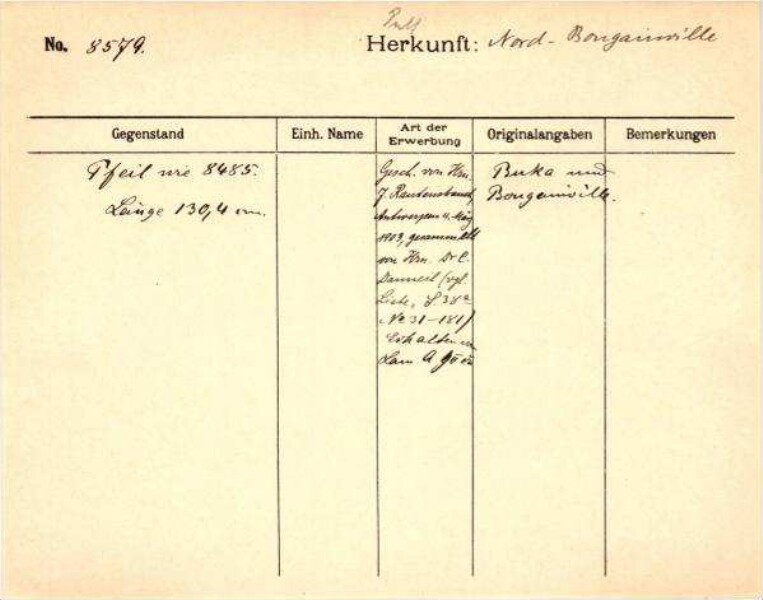 No. 8579.
Herkunft: Nord-Bougainville
Gegenstand
Einh. Name
Art der Erwerbung
Originalangaben
Bemerkungen
Pfeil wie 8485.
Länge 130,4 cm.
Gesch. von Hrn.
J. Rautenstrauch,
Antwerpen 4. März
1903, gesammelt
von Hrn. Dr C.
Danneil (vgl.
Liste, S. 38a
No 31–181)
Erhalten
Lam. A
Buka und
Bougainville.